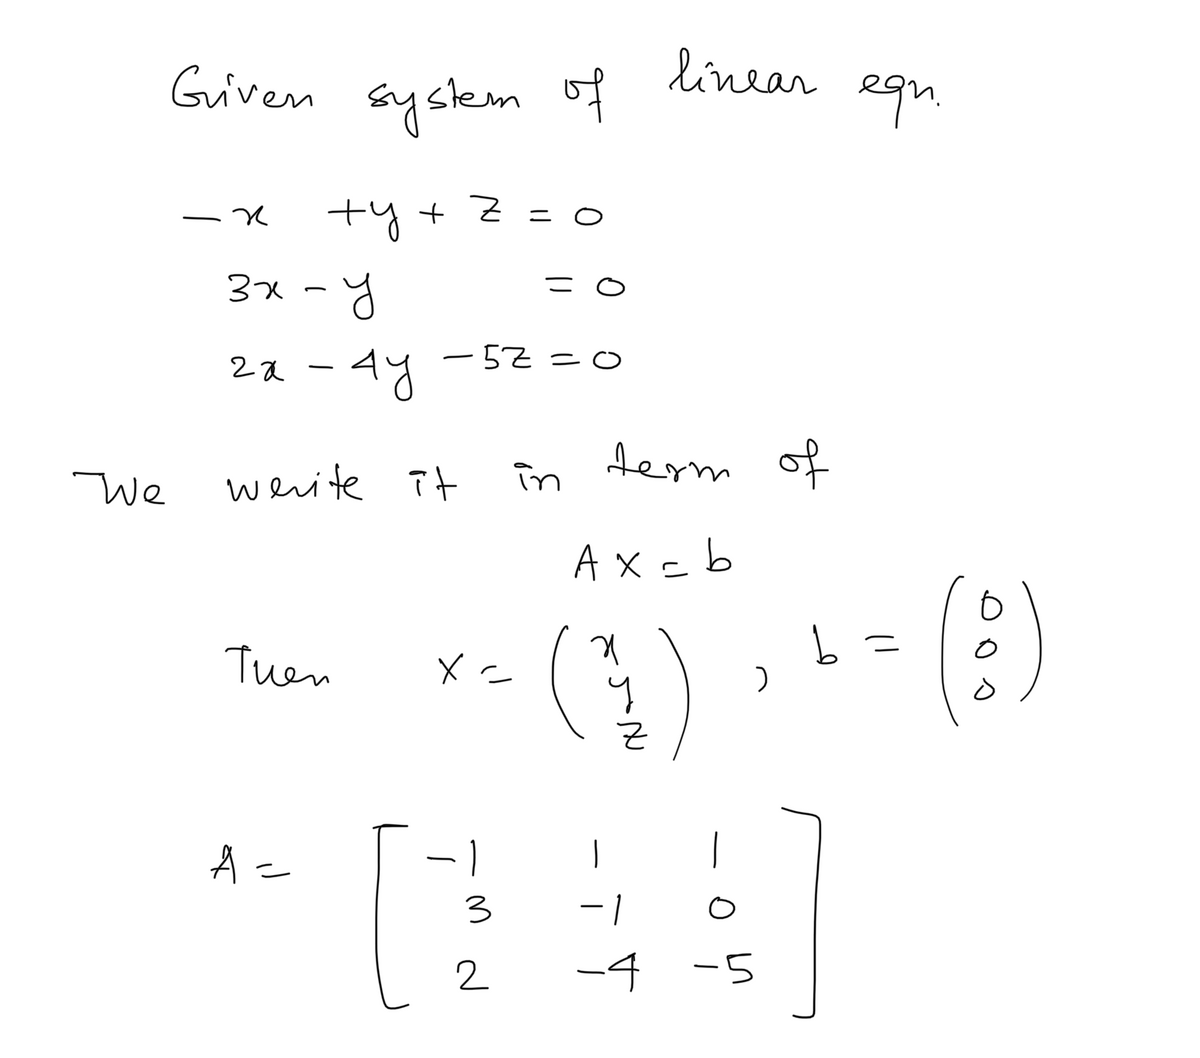 Given system of linear eqn.
-x + y + z = 0
3x - y = 0
2x - 4y - 5z = 0
We write it in term of
A X = b
Then X = (x y z), b = (0 0 0)
A = [-1 1 1
3 -1 0
2 -4 -5]